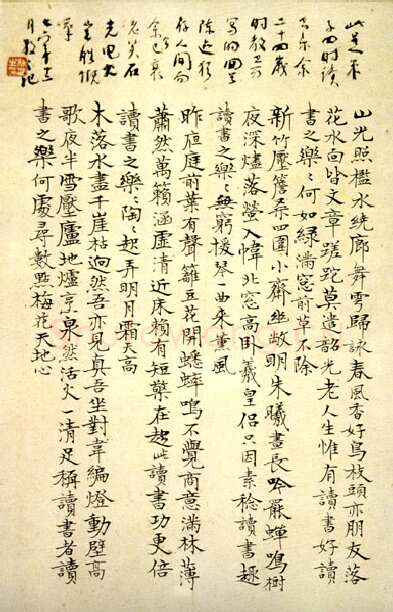 此是朱
子四时讀
書樂余
二十四歲
存人間
余已衰
山光照檻水繞廊舞雩歸詠春風香好鳥枝頭亦朋友落
花水面皆文章蹉跎莫遣韶光老人生惟有讀書好讀
書之樂〻何如綠滿窓前草不除
新竹壓簷桑四圍小齋幽敞明朱曦晝長吟罷蟬鳴樹
夜深燼落螢入幃北窓高卧羲皇侶只因素稔讀書趣
讀書之樂〻無窮援琴一曲来薰風
昨夜庭前葉有聲籬豆花開蟋蟀鳴不覺商意滿林薄
蕭然萬籟涵虛清近床賴有短檠在趂此讀書功更倍
讀書之樂〻陶〻起弄明月霜天高
木落水盡千崖枯迥然吾亦見真吾坐對韋編燈動壁高
歌夜半雪壓廬地爐烹泉然活火一清足稱讀書者讀
書之樂何處尋數點梅花天地心